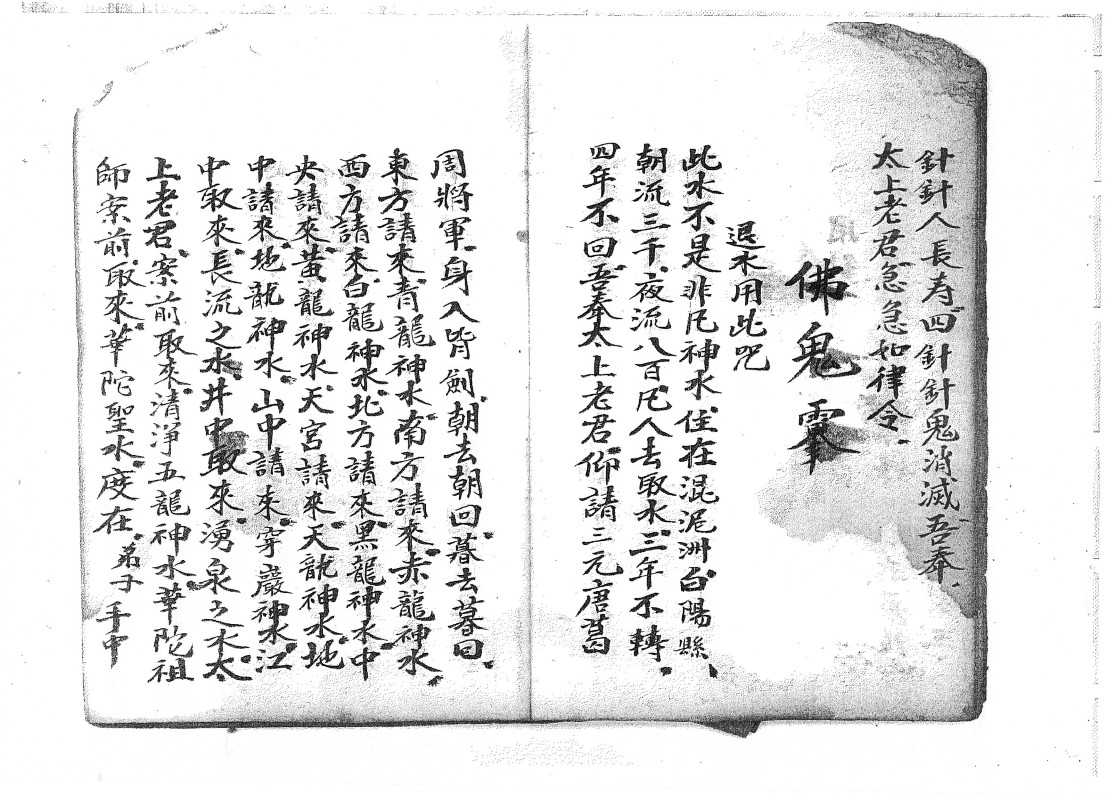 針針人長寿四針針鬼消滅吾奉
太上老君急急如律令
佛鬼靈
退水用此咒
此水不是非凡神水住在混泥洲白陽縣
朝流三千夜流八百凡人去取水三年不轉
四年不回吾奉太上老君仰請三元唐葛
周將軍身入皆劍朝去朝回暮去暮回
東方請來青龍神水南方請來赤龍神水
西方請來白龍神水北方請來黑龍神水中
央請來黃龍神水天宮請來天龍神水地
中請來地龍神水山中請來穿巖神水江
中取來長流之水井中取來湧泉之水太
上老君案前取來清淨五龍神水華陀祖
師案前取來華陀聖水度在弟子手中